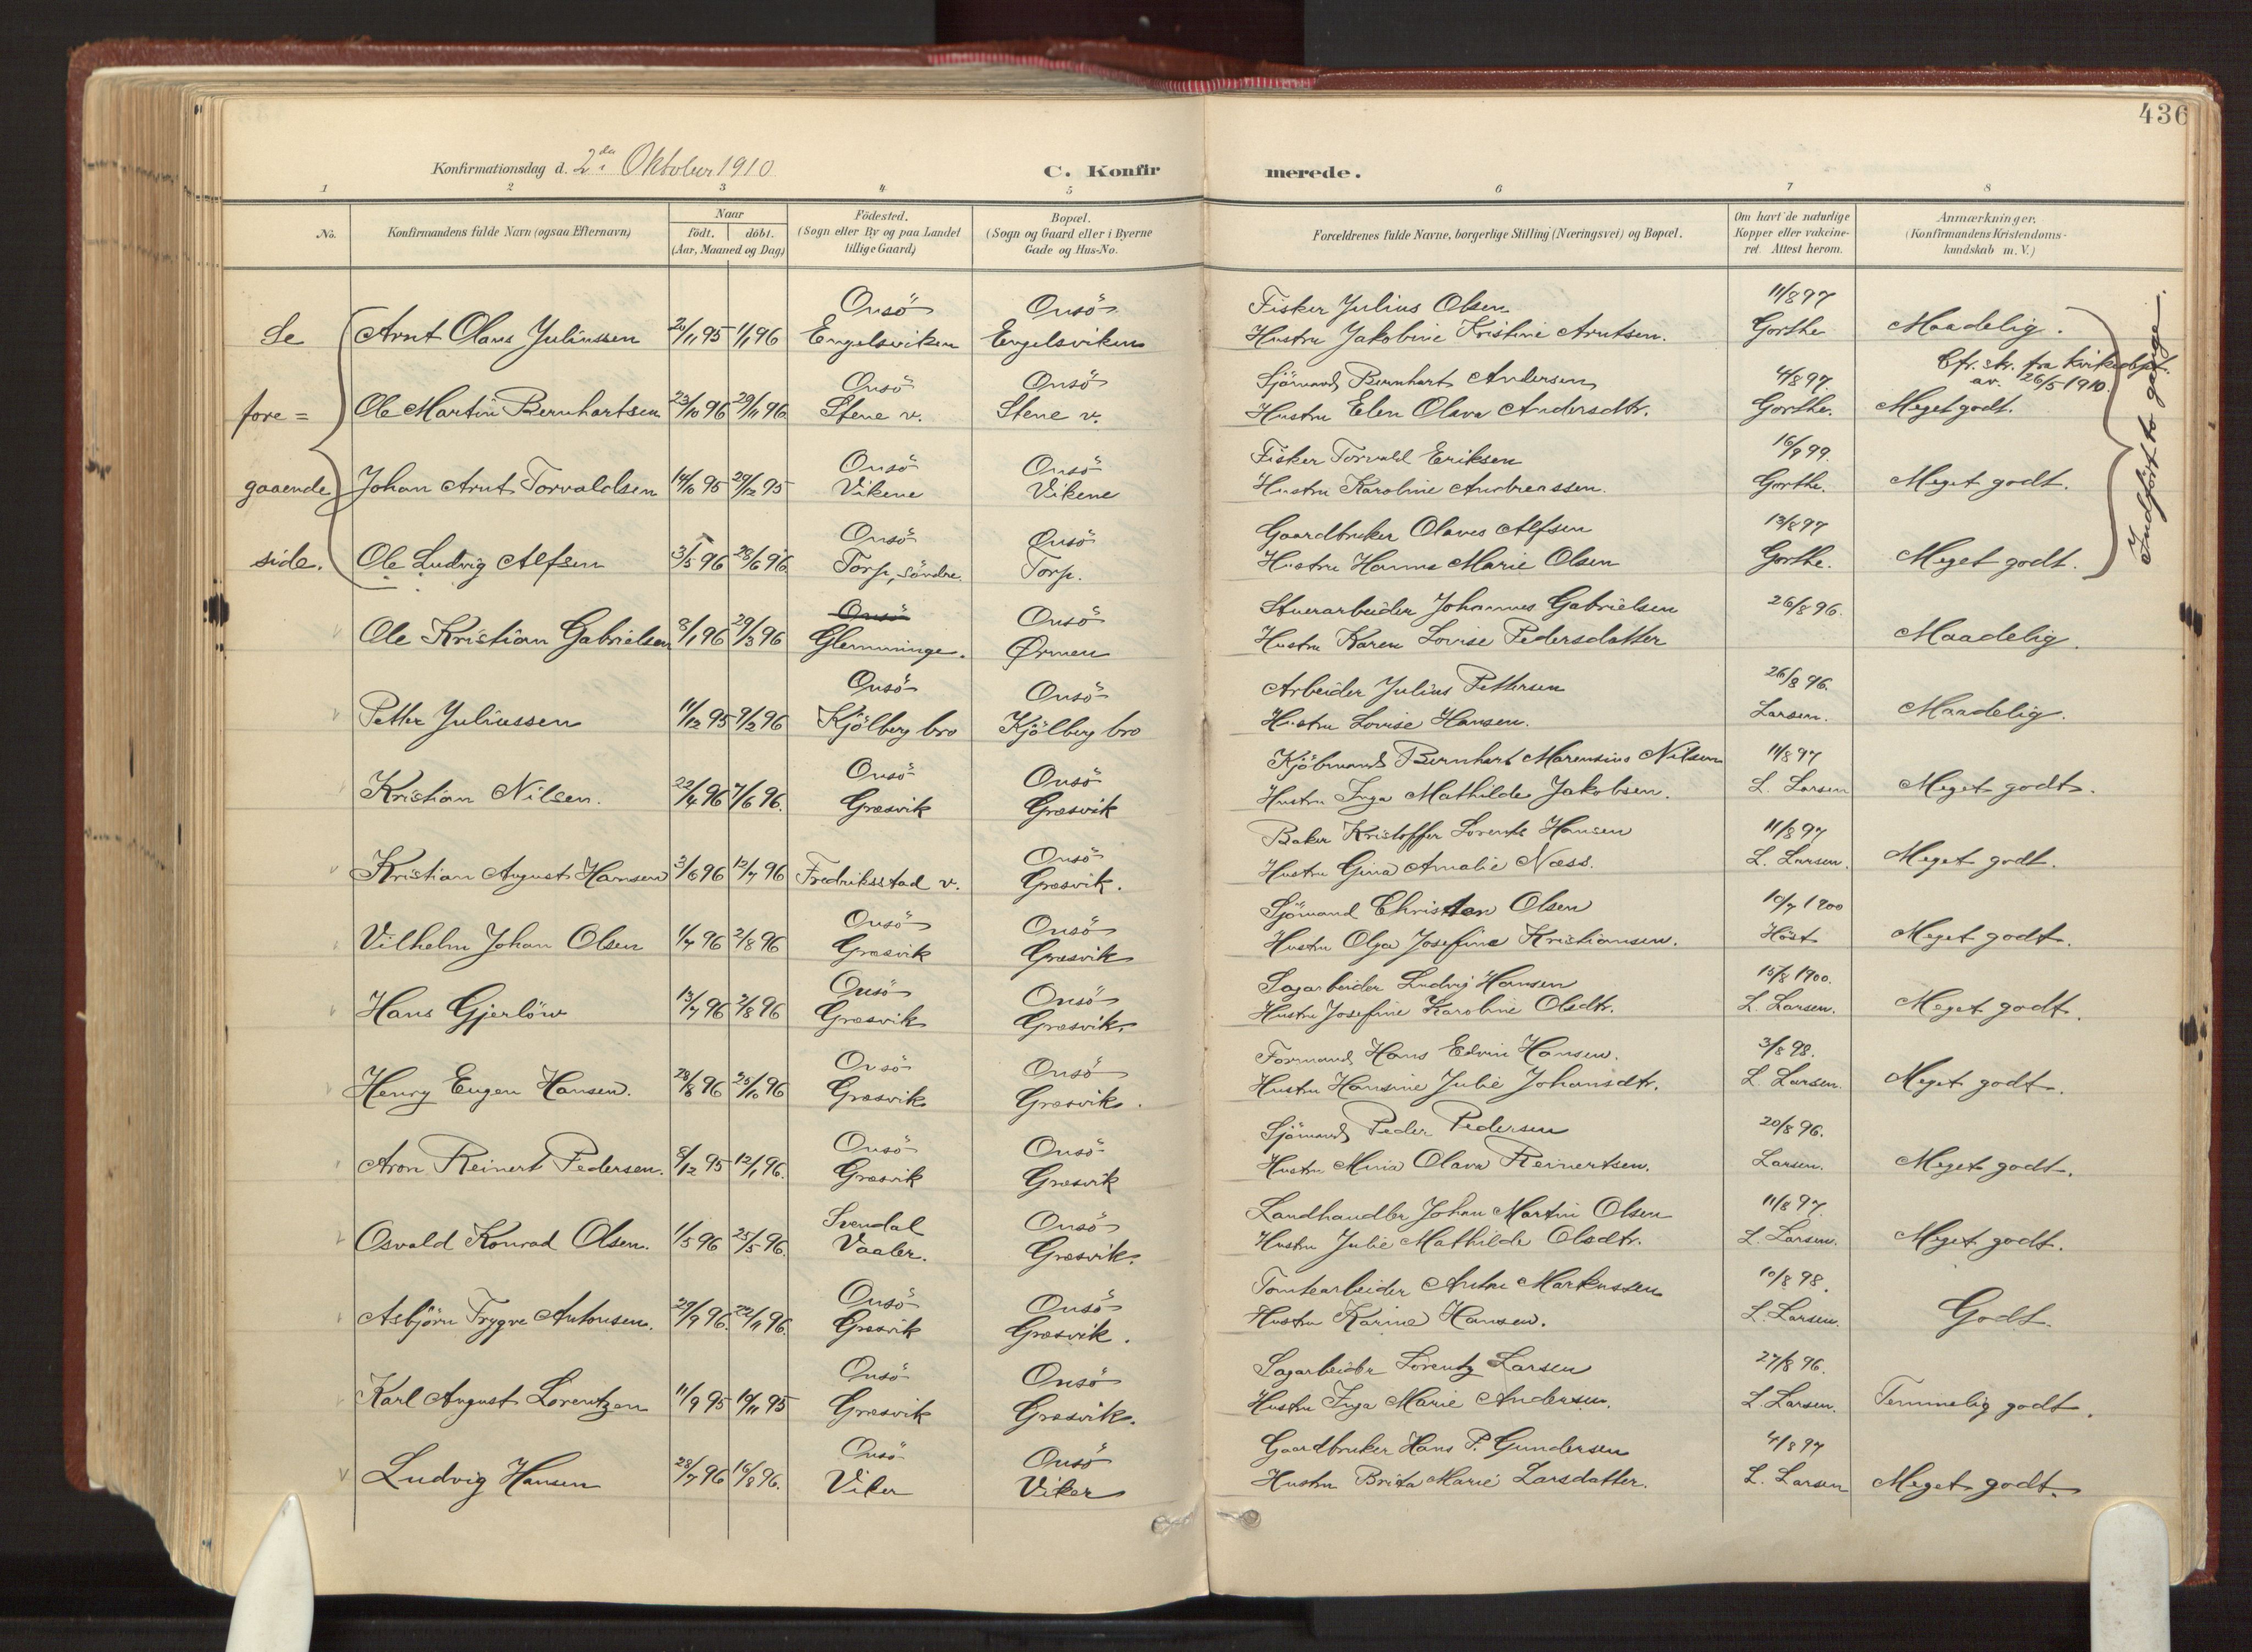 436
Konfirmationsdag d. 2den Oktober 1910
C. Konfirmerede.
1 2 3 4 5 6 7 8
No.
Konfirmandens fulde Navn (ogsaa Efternavn)
Naar
født. døbt.
(Aar, Maaned og Dag)
Fødested.
(Sogn eller By og paa Landet
tillige Gaard)
Bopæl.
(Sogn og Gaard eller i Byerne
Gade og Hus-No.
Forældrenes fulde Navne, borgerlige Stilling (Næringsvei) og Bopæl.
Om havt de naturlige
Kopper eller vakcine-
ret. Attest herom.
Anmærkninger.
(Konfirmandens Kristendoms-
kundskab m. V.)
Se
fore=
gaaende
side.
Indført to gange.
Onsö Onsö Fisker Julius Olsen 11/8 97
Arnt Olaus Juliussen 20/11 95 1/1 96 Engelsviken Engelsviken Hustru Jakobine Kristine Arntsen. Gorthe Maadelig.
Cfr. skr. fra kirkedept.
av. 26/5 1910.
Onsö Onsö Sjömand Bernhart Andersen 4/8 97.
Ole Martin Bernhartsen 23/10 96 29/11 96 Stene v. Stene v. Hustru Elen Olava Andersdtr. Gorthe. Meget godt.
Onsö Onsö Fisker Torvald Eriksen 16/9 99.
Johan Arnt Torvaldsen 14/10 95 29/12 95 Vikene Vikene Hustru Karoline Andreassen. Gorthe. Meget godt.
Onsö Onsö Gaardbruker Olaves Alfsen 13/8 97
Ole Ludvig Alfsen 3/5 96 28/6 96. Torp, söndre. Torp. Hustru Hanna Marie Olsen Gorthe. Meget godt.
Onsö Onsö Stuerarbeider Johannes Gabrielsen 26/8 96.
Ole Kristian Gabrielsen 8/1 96 29/3 96 Glemminge. Ørmen Hustru Karen Lovise Pedersdatter Maadelig.
Onsö Onsö Arbeider Julius Pettersen 26/8 96.
Petter Juliussen 11/12 95 9/2 96 Kjölberg bro Kjölberg bro Hustru Lovise Hansen. Larsen. Maadelig.
Onsö Onsö Kjöbmand Bernhart Marensius Nilsen 11/8 97
Kristian Nilsen. 22/4 96 7/6 96. Græsvik Græsvik Hustru Inga Mathilde Jakobsen. L. Larsen Meget godt.
Onsö Baker Kristoffer Lorents Hansen 11/8 97
Kristian August Hansen 3/6 96 12/7 96 Fredriksstad v. Græsvik. Hustru Gina Amalie Næss. L. Larsen. Meget godt.
Onsö Onsö Sjömand Christian Olsen 10/7 1900
Vilhelm Johan Olsen 1/7 96 2/8 96 Græsvik Græsvik Hustru Olga Josefine Kristiansen. Höst Meget godt.
Onsö Onsö Sagarbeider Ludvig Hansen 15/8 1900.
Hans Gjerlöw 13/7 96 2/8 96 Græsvik Græsvik. Hustru Josefine Karoline Olsdtr. L. Larsen. Meget godt.
Onsö Onsö Formand Hans Edvin Hansen. 3/8 98.
Henry Eugen Hansen. 28/8 96 25/10 96 Græsvik Græsvik. Hustru Hansine Julie Johansdtr. L. Larsen. Meget godt.
Onsö Onsö Sjömand Peder Pedersen 20/8 96.
Aron Reinert Pedersen. 8/12 95 12/1 96. Græsvik Græsvik Hustru Mina Olava Reinertsen. Larsen. Meget godt.
Svendal Onsö Landhandler Johan Martin Olsen 11/8 97.
Osvald Konrad Olsen. 1/5 96 25/5 96. Vaaler. Græsvik. Hustru Julie Mathilde Olsdtr. L. Larsen. Meget godt.
Onsö Onsö Tomtearbeider Anton Markussen 10/8 98.
Asbjörn Trygve Antonsen. 29/9 96. 22/11 96. Græsvik Græsvik. Hustru Karine Hansen. L. Larsen. Godt.
Onsö Onsö Sagarbeider Lorentz Larsen 27/8 96.
Karl August Lorentzen 11/9 95 10/11 95 Græsvik Græsvik. Hustru Inga Marie Andersen. L. Larsen. Temmelig godt.
Onsö Onsö Gaardbruker Hans P. Gundersen 4/8 97
Ludvig Hansen 28/7 96 16/8 96. Viker Viker Hustru Brita Marie Larsdatter. L. Larsen Meget godt.